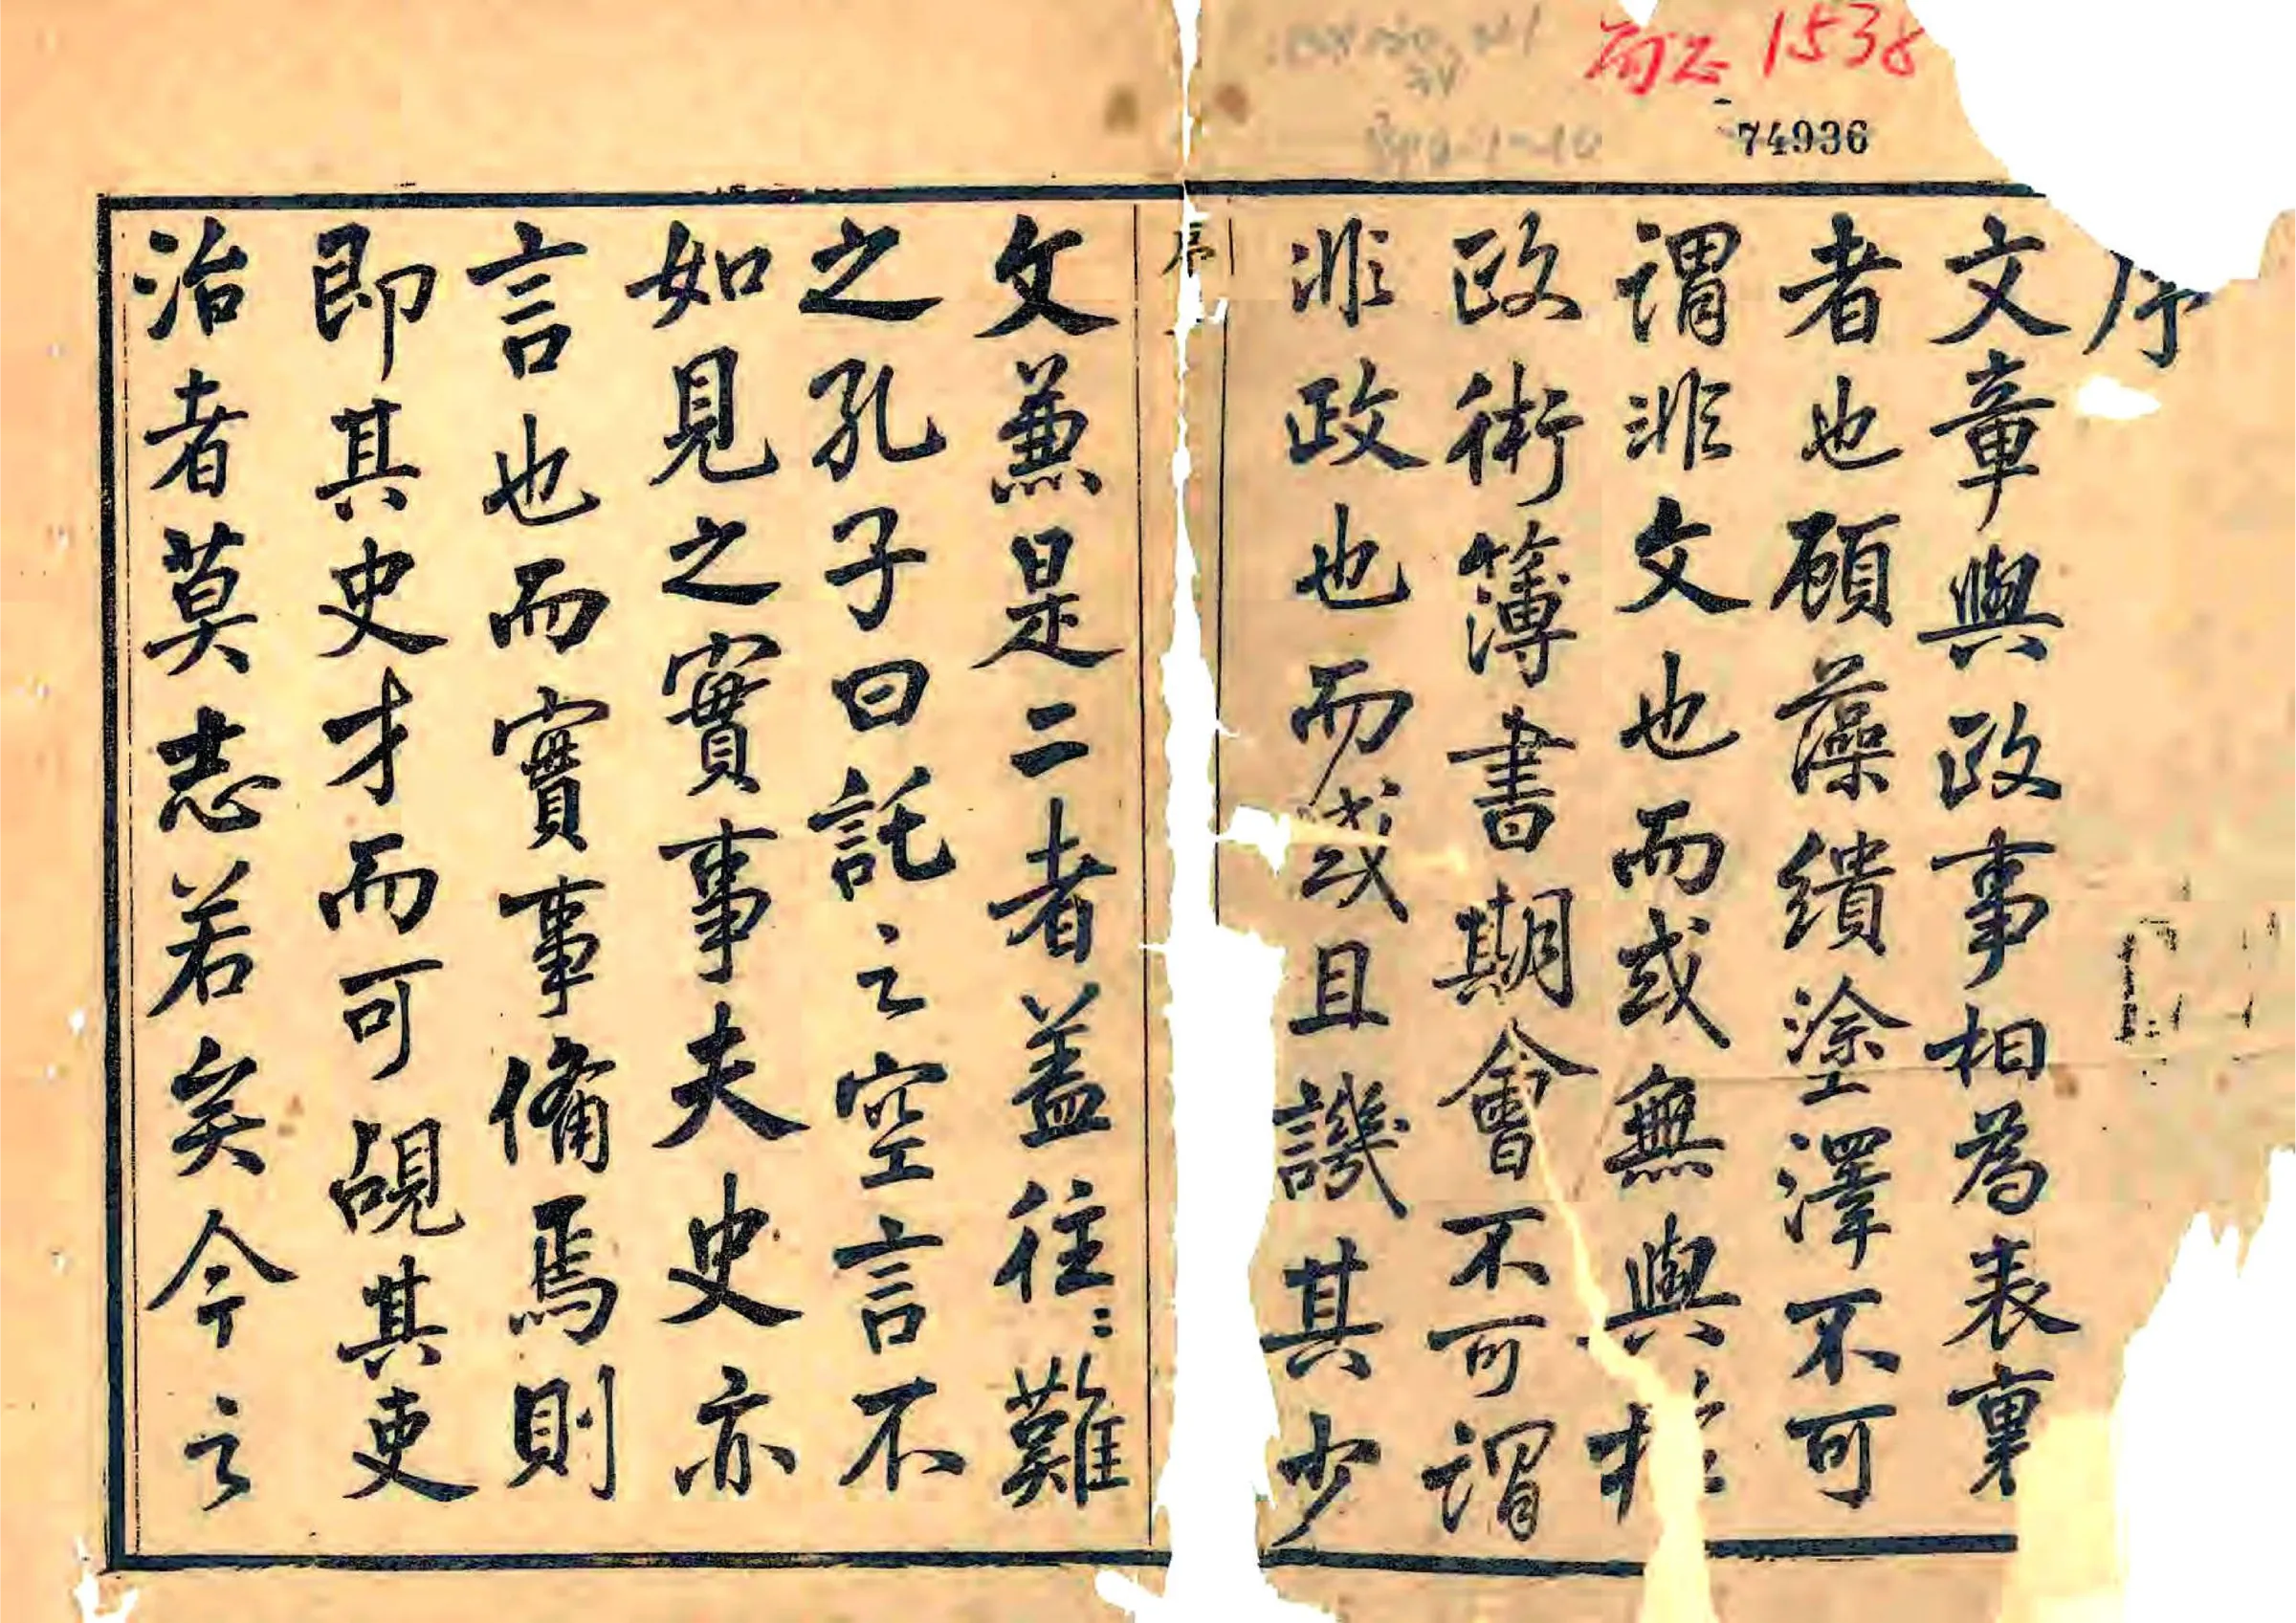 序
文章與政事相為表裏
者也顧藻繢塗澤不可
謂非文也而或無與於
政術簿書期會不可謂
非政也而或且譏其少
序
文兼是二者蓋往〻難
之孔子曰託之空言不
如見之實事夫史亦
言也而實事備焉則
即其史才而可覘其吏
治者莫志若矣今之
荷正 1538
74936